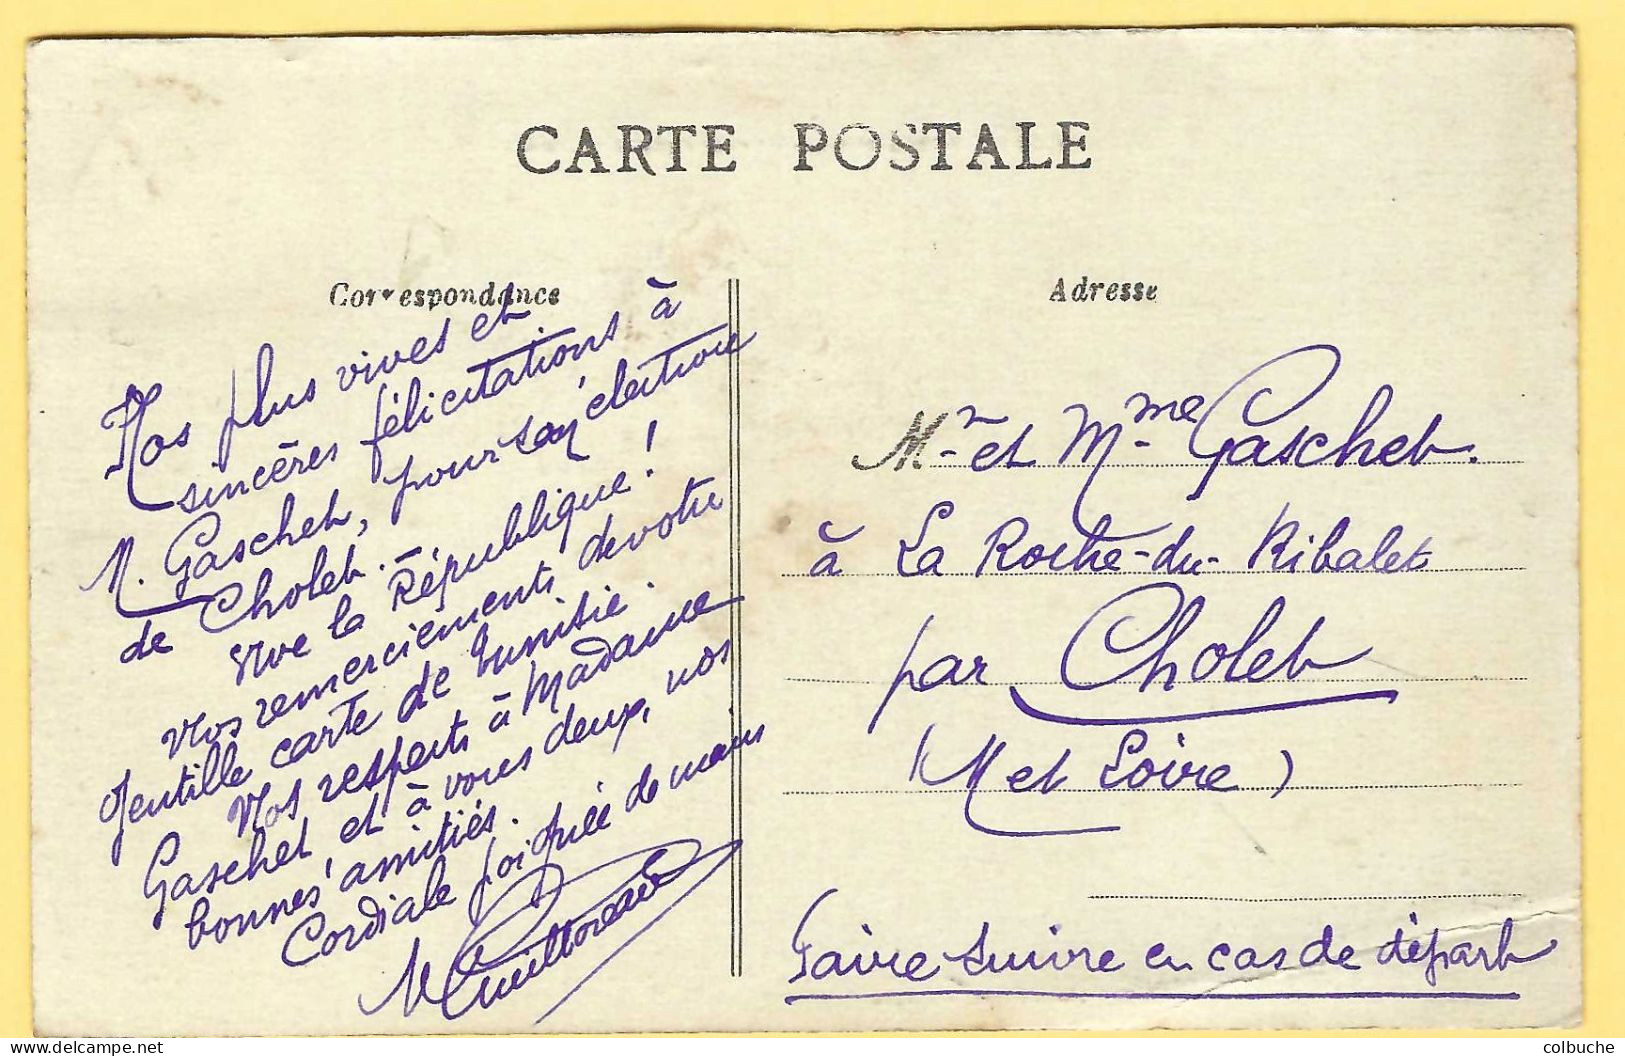 CARTE POSTALE
Correspondance
Adresse
Nos plus vives et
sincères félicitations à
M. Gaschet, pour son élection
de Cholet. -
Vive la République!
Nos remerciements de votre
gentille carte de Tunisie.
Nos respects à Madame
Gaschet, et à vous deux, nos
bonnes amitiés.
Cordiale poignée de mains
M Guilloreau
Mr et Mme Gaschet.
à La Roche-du-Ribalet
par Cholet
(M et Loire)
Faire suivre en cas de départ
colbuche